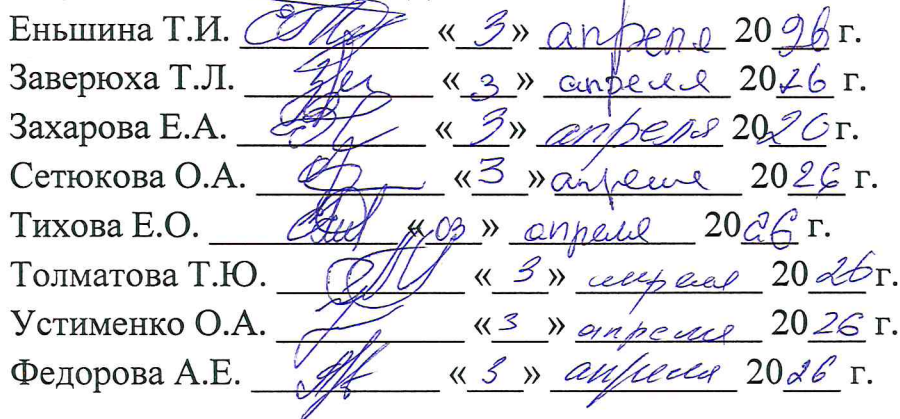 Еньшина Т.И. «3» апреля 2026 г.
Заверюха Т.Л. «3» апреля 2026 г.
Захарова Е.А. «3» апреля 2026 г.
Сетюкова О.А. «3» апреля 2026 г.
Тихова Е.О. «03» апреля 2026 г.
Толматова Т.Ю. «3» апреля 2026 г.
Устименко О.А. «3» апреля 2026 г.
Федорова А.Е. «3» апреля 2026 г.